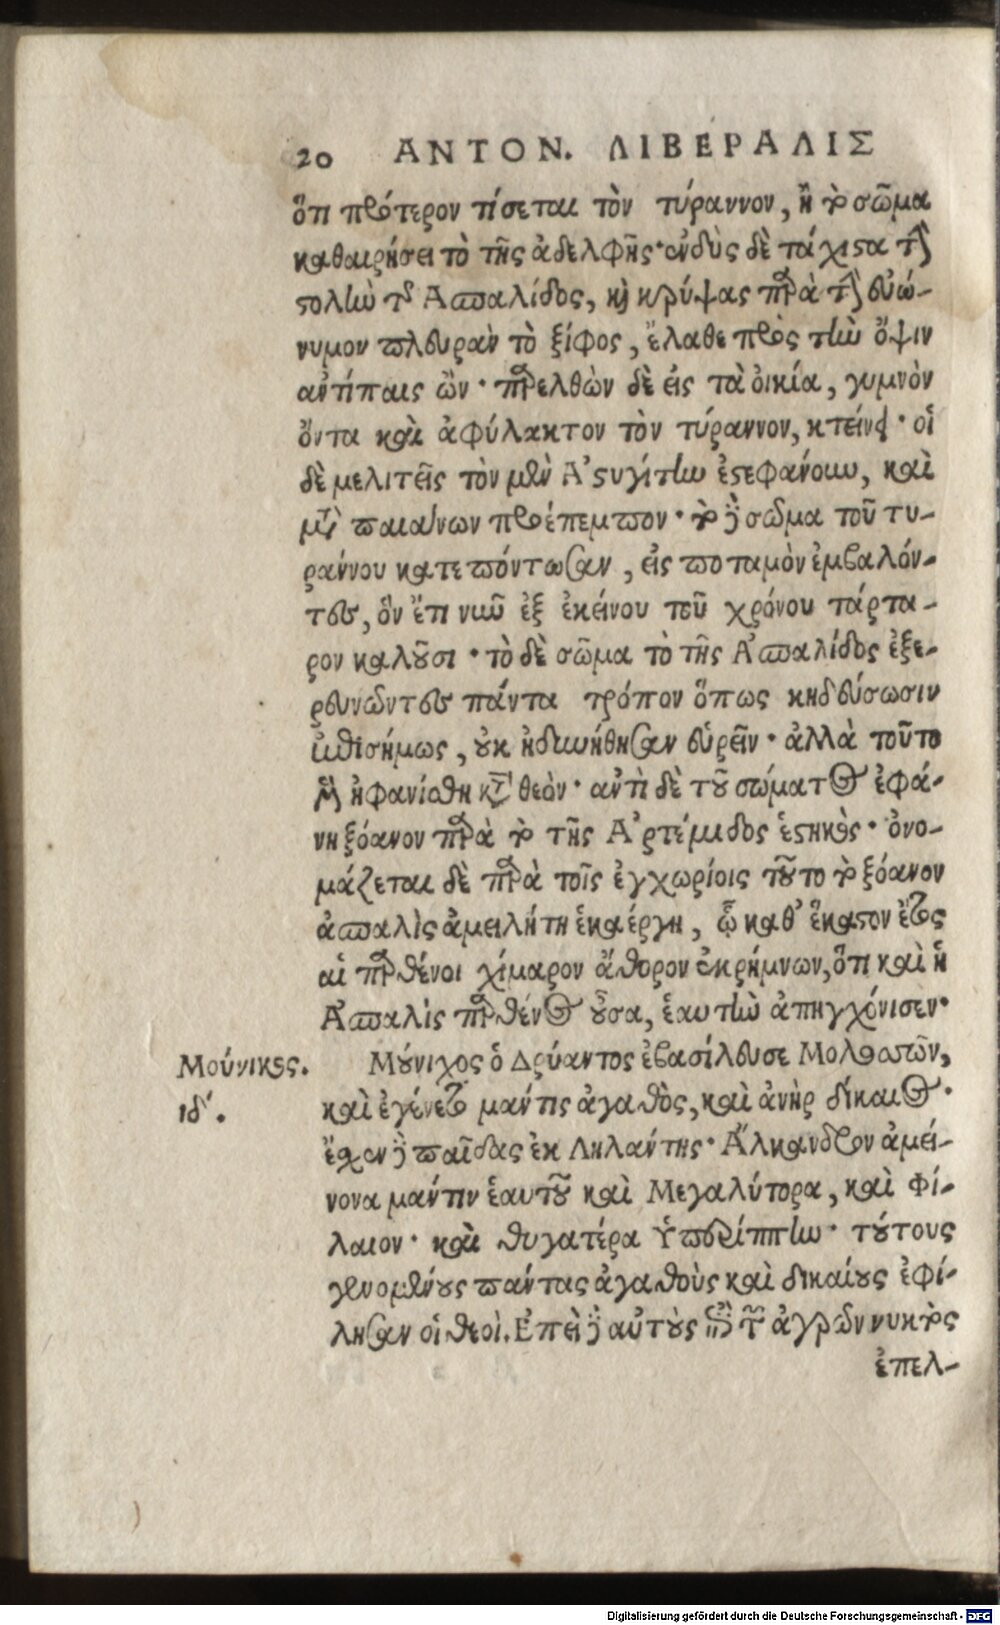 20 ΑΝΤΟΝ. ΛΙΒΕΡΑΛΙΣ
ὅτι πρότερον τίσεται τὸν τύραννον, ἢ τὸ σῶμα
καθαιρήσει τὸ τῆς ἀδελφῆς· ἐνδὺς δὲ τάχιστα τὴν
στολὴν τῆς Ἀσπαλίδος, καὶ κρύψας παρὰ τὴν εὐώ-
νυμον πλευρὰν τὸ ξίφος, ἔλαθε πρὸς τὴν ὄψιν
ἀντίπαις ὢν· παρελθὼν δὲ εἰς τὰ οἰκία, γυμνὸν
ὄντα καὶ ἀφύλακτον τὸν τύραννον, κτείνει· οἱ
δὲ μελιτεῖς τὸν μὲν Ἀστυγίτην ἐστεφάνουν, καὶ
μετὰ παιάνων προέπεμπον· τὸ δὲ σῶμα τοῦ τυ-
ράννου κατεπόντωσαν, εἰς ποταμὸν ἐμβαλόν-
τες, ὃν ἔτι νῦν ἐξ ἐκείνου τοῦ χρόνου τάρτα-
ρον καλοῦσι· τὸ δὲ σῶμα τὸ τῆς Ἀσπαλίδος ἐξε-
ρευνῶντες πάντα τρόπον ὅπως κηδεύσωσιν
ἐπισήμως, οὐκ ἠδυνήθησαν εὑρεῖν· ἀλλὰ τοῦτο
μὲν ἠφανίσθη κατὰ θεὸν· ἀντὶ δὲ τοῦ σώματος ἐφά-
νη ξόανον παρὰ τὸ τῆς Ἀρτέμιδος ἑστηκὸς· ὀνο-
μάζεται δὲ παρὰ τοῖς ἐγχωρίοις τοῦτο τὸ ξόανον
ἀσπαλὶς ἀμειλήτη ἑκαέργη, ᾧ καθ' ἕκαστον ἔτος
αἱ παρθένοι χίμαρον ἄθορον ἐκρήμνων, ὅτι καὶ ἡ
Ἀσπαλὶς παρθένος οὖσα, ἑαυτὴν ἀπηγχόνισεν·
Μούνικος.
ιδʹ.
Μούνιχος ὁ Δρύαντος ἐβασίλευσε Μολοσσῶν,
καὶ ἐγένετο μάντις ἀγαθὸς, καὶ ἀνὴρ δίκαιος·
ἔσχεν δὲ παῖδας ἐκ Ληλάντης· Ἄλκανδρον ἀμεί-
νονα μάντιν ἑαυτοῦ καὶ Μεγαλήτορα, καὶ Φί-
λαιον· καὶ θυγατέρα Ὑπερίππην· τούτους
γενομένους πάντας ἀγαθοὺς καὶ δικαίους ἐφί-
λησαν οἱ θεοὶ. Ἐπεὶ δὲ αὐτοὺς ἐπὶ τῶν ἀγρῶν νυκτὸς
ἐπελ-
Digitalisierung gefördert durch die Deutsche Forschungsgemeinschaft - DFG